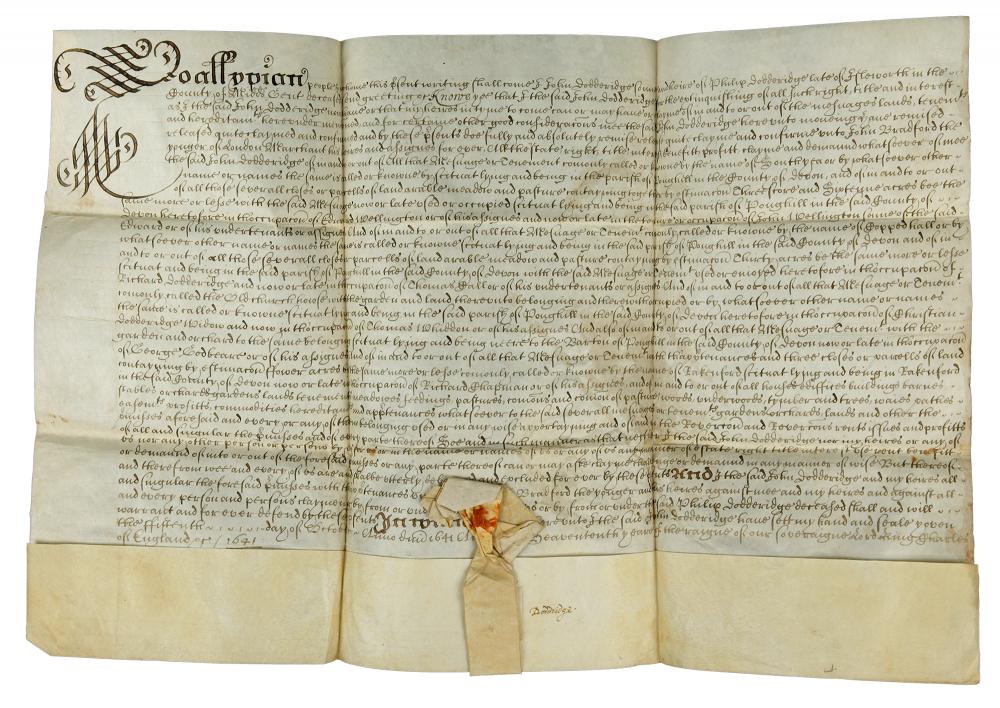 To all xpian people to whome this psent writing shall come I John Dodderidge sonne and heire of Philip Dodderidge late of Isleworth in the
County of Midds Gent deceased send greeting &c Knowe yee that I the said John Dodderidge for the relinquishing of all such right, title and interest
as I the said John Dodderidge or that my heires in tyme to come can or may have or in and to or out of the messuages lands, tenemts
and hereditamts hereunder mencoed, and for certaine other good consideracons mee the said John Dodderidge hereunto moveing have remised
released quiteclaymed and confirmed and by these psents doe fully and absolutely remise release quit clayme and confirme unto John Bradford the
yonger of London Marchant his heires and assignes for ever All the state, right, title, interest benefitt, profitt clayme and demaund whatsoever of mee
the said John Dodderidge of in and to or out of All that Messuage or Tenement comonly called or knowne by the name of Southyea or by whatsoever other
name or names the same is called or knowne by scituat lying and being in the parish of Poughill in the County of Devon, and of in and to or out
of all those severall closes or parcells of land arable meadow and pasture contayning together by estimacon Threescore and Sixteene acres bee the
same more or lesse with the said Messuage now or late used or occupied scituat lying and being in the said parish of Poughill in the said County of
Devon heretofore in thoccupacon of Edward Wellington or of his assignes and now or late in the tenure or occupacon of John Wellington sonne of the said
Edward or of his undertenants or assignes And of in and to or out of all that Messuage or Tenemt comonly called or knowne by the name of Copped hall or by
whatsoever other name or names the same is called or knowne scituat lying and being in the said parish of Poughill in the said County of Devon and of in
and to or out of all those severall closes or parcells of land arable meadow and pasture contayning by estimacon Thirty acres be the same more or lesse
scituat and being in the said parish of Poughill in the said County of Devon with the said Messuage or Tenemt used or enioyed heretofore in thoccupacon of
Richard Dodderidge and now or late in thoccupacon of Thomas Gall or of his undertenants or assignes And of in and to or out of all that Messuage or Tenemt
comonly called the Old church house with the garden and land thereunto belonging and therewith occupied or by whatsoever other name or names
the same is called or knowne scituat lying and being in the said parish of Poughill in the said County of Devon heretofore in thoccupacon of Christian
Dodderidge Widow and now in thoccupacon of Thomas Whiddon or of his assignes And also of in and to or out of all that Messuage or Tenemt with the
garden and orchard to the same belonging scituat lying and being neere to the Barton of Poughill in the said County of Devon now or late in thoccupacon
of George Godbeare or of his assignes And of in and to or out of all that Messuage or Tenemt with thappurtenances and three closes or parcells of land
contayning by estimacon ffower acres be the same more or lesse comonly called or knowne by the name of Rakenford scituat lying and being in Rakenford
in the said County of Devon now or late in thoccupacon of Richard Chapman or of his assignes, and of in and to or out of all houses edifices buildings barnes
stables orchards gardens lands tenements meadowes feedings, pastures, comons and comon of pasture woods, underwoods, tymber and trees, waies pathes
easemts profitts, comodities hereditaments and apptenances whatsoever to the said severall messuages or tenemts gardens orchards, lands and other the
pmisses aforesaid and every or any of them belonging used or in any wise appertayning and of and in the Revercon and Revercons rents issues and profitts
of all and singular the pmisses and of every parte thereof Soe and in such manner as that neither I the said John Dodderidge nor my heires or any of
us nor any other person or persons by for or in the name or names of us or any of us any manner of estate right title interest use rent benefitt
or demaund of into or out of the foresaid pmisses or any parte thereof can or may aske clayme challenge or demaund in any manner of wise But thereof
and therefrom wee and every of us are and shalbe utterly excluded for ever by these psents And I the said John Dodderidge and my heires all
and singular the foresaid pmisses with thapptenances unto Bradford the younger and his heires against mee and my heires and against all
and every person and persons clayming by from or under or by from or under the said Philip Dodderidge deceased shall and will
warrant and for ever defend by these In witnes whereunto I the said John Dodderidge have sett my hand and seale yeoven
the ffifteenth day of October Anno dni 1641 Seavententh yeare of the raigne of our soveraigne Lord King Charles
of England &c / 1641
Dodderidge